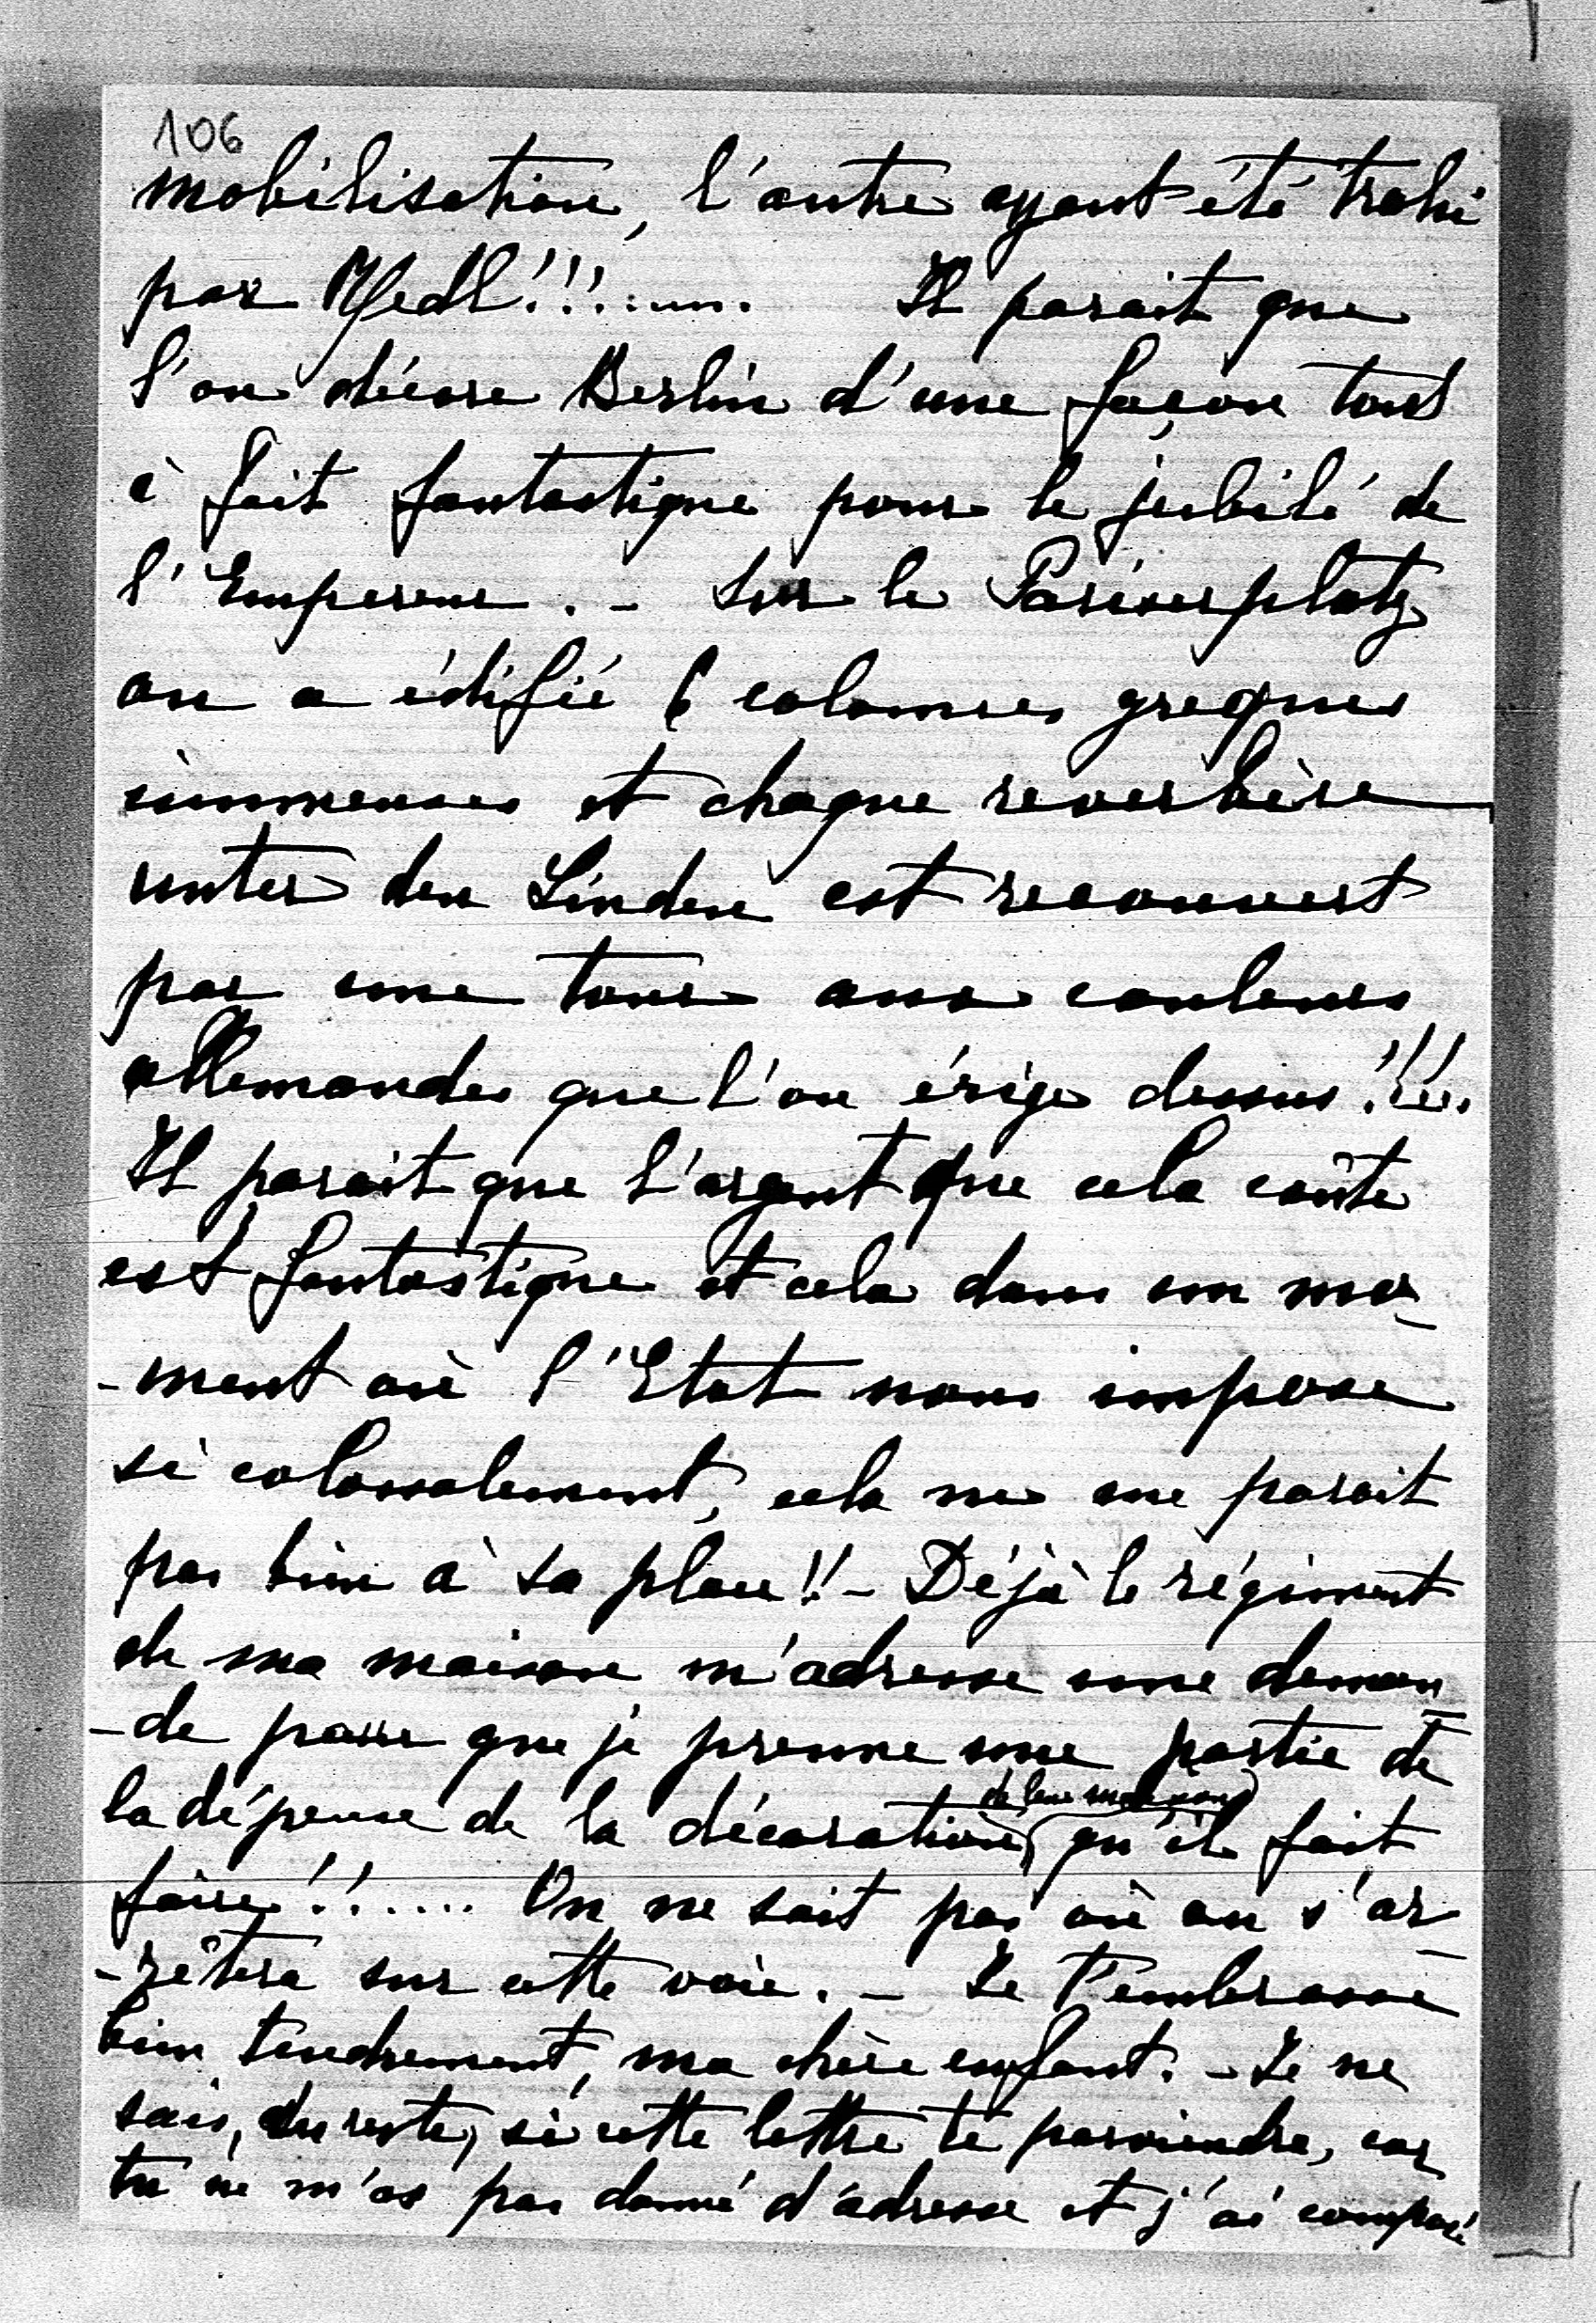 106
mobilisation, l'autre ayant été trahi
par Redl!!!...... Il parait que
l'on décore Berlin d'une façon tout
à fait fantastique pour le jubilé de
l'Empereur. - Sur le Pariserplatz
on a édifié 6 colonnes greques
immenses et chaque reverbère
unter den Linden est recouvert
par une tour aux couleurs
allemandes que l'on érige dessus!!!
Il parait que l'argent que cela coûte
est fantastique et cela dans un mo-
-ment où l'Etat nous impose
si colossalement, cela ne me parait
pas bien à sa place!! - Déjà le régiment
de ma maison m'adresse une deman-
-de pour que je prenne une partie de
de leur maison
la dépense de la décoration, qu'il fait
faire!!...... On ne sait pas où on s'ar-
-rêtera sur cette voie. - Je t'embrasse
bien tendrement, ma chère enfant. - Je ne
sais, du reste, si cette lettre te parviendra, car
tu ne m'as pas donné d'adresse et j'ai composé